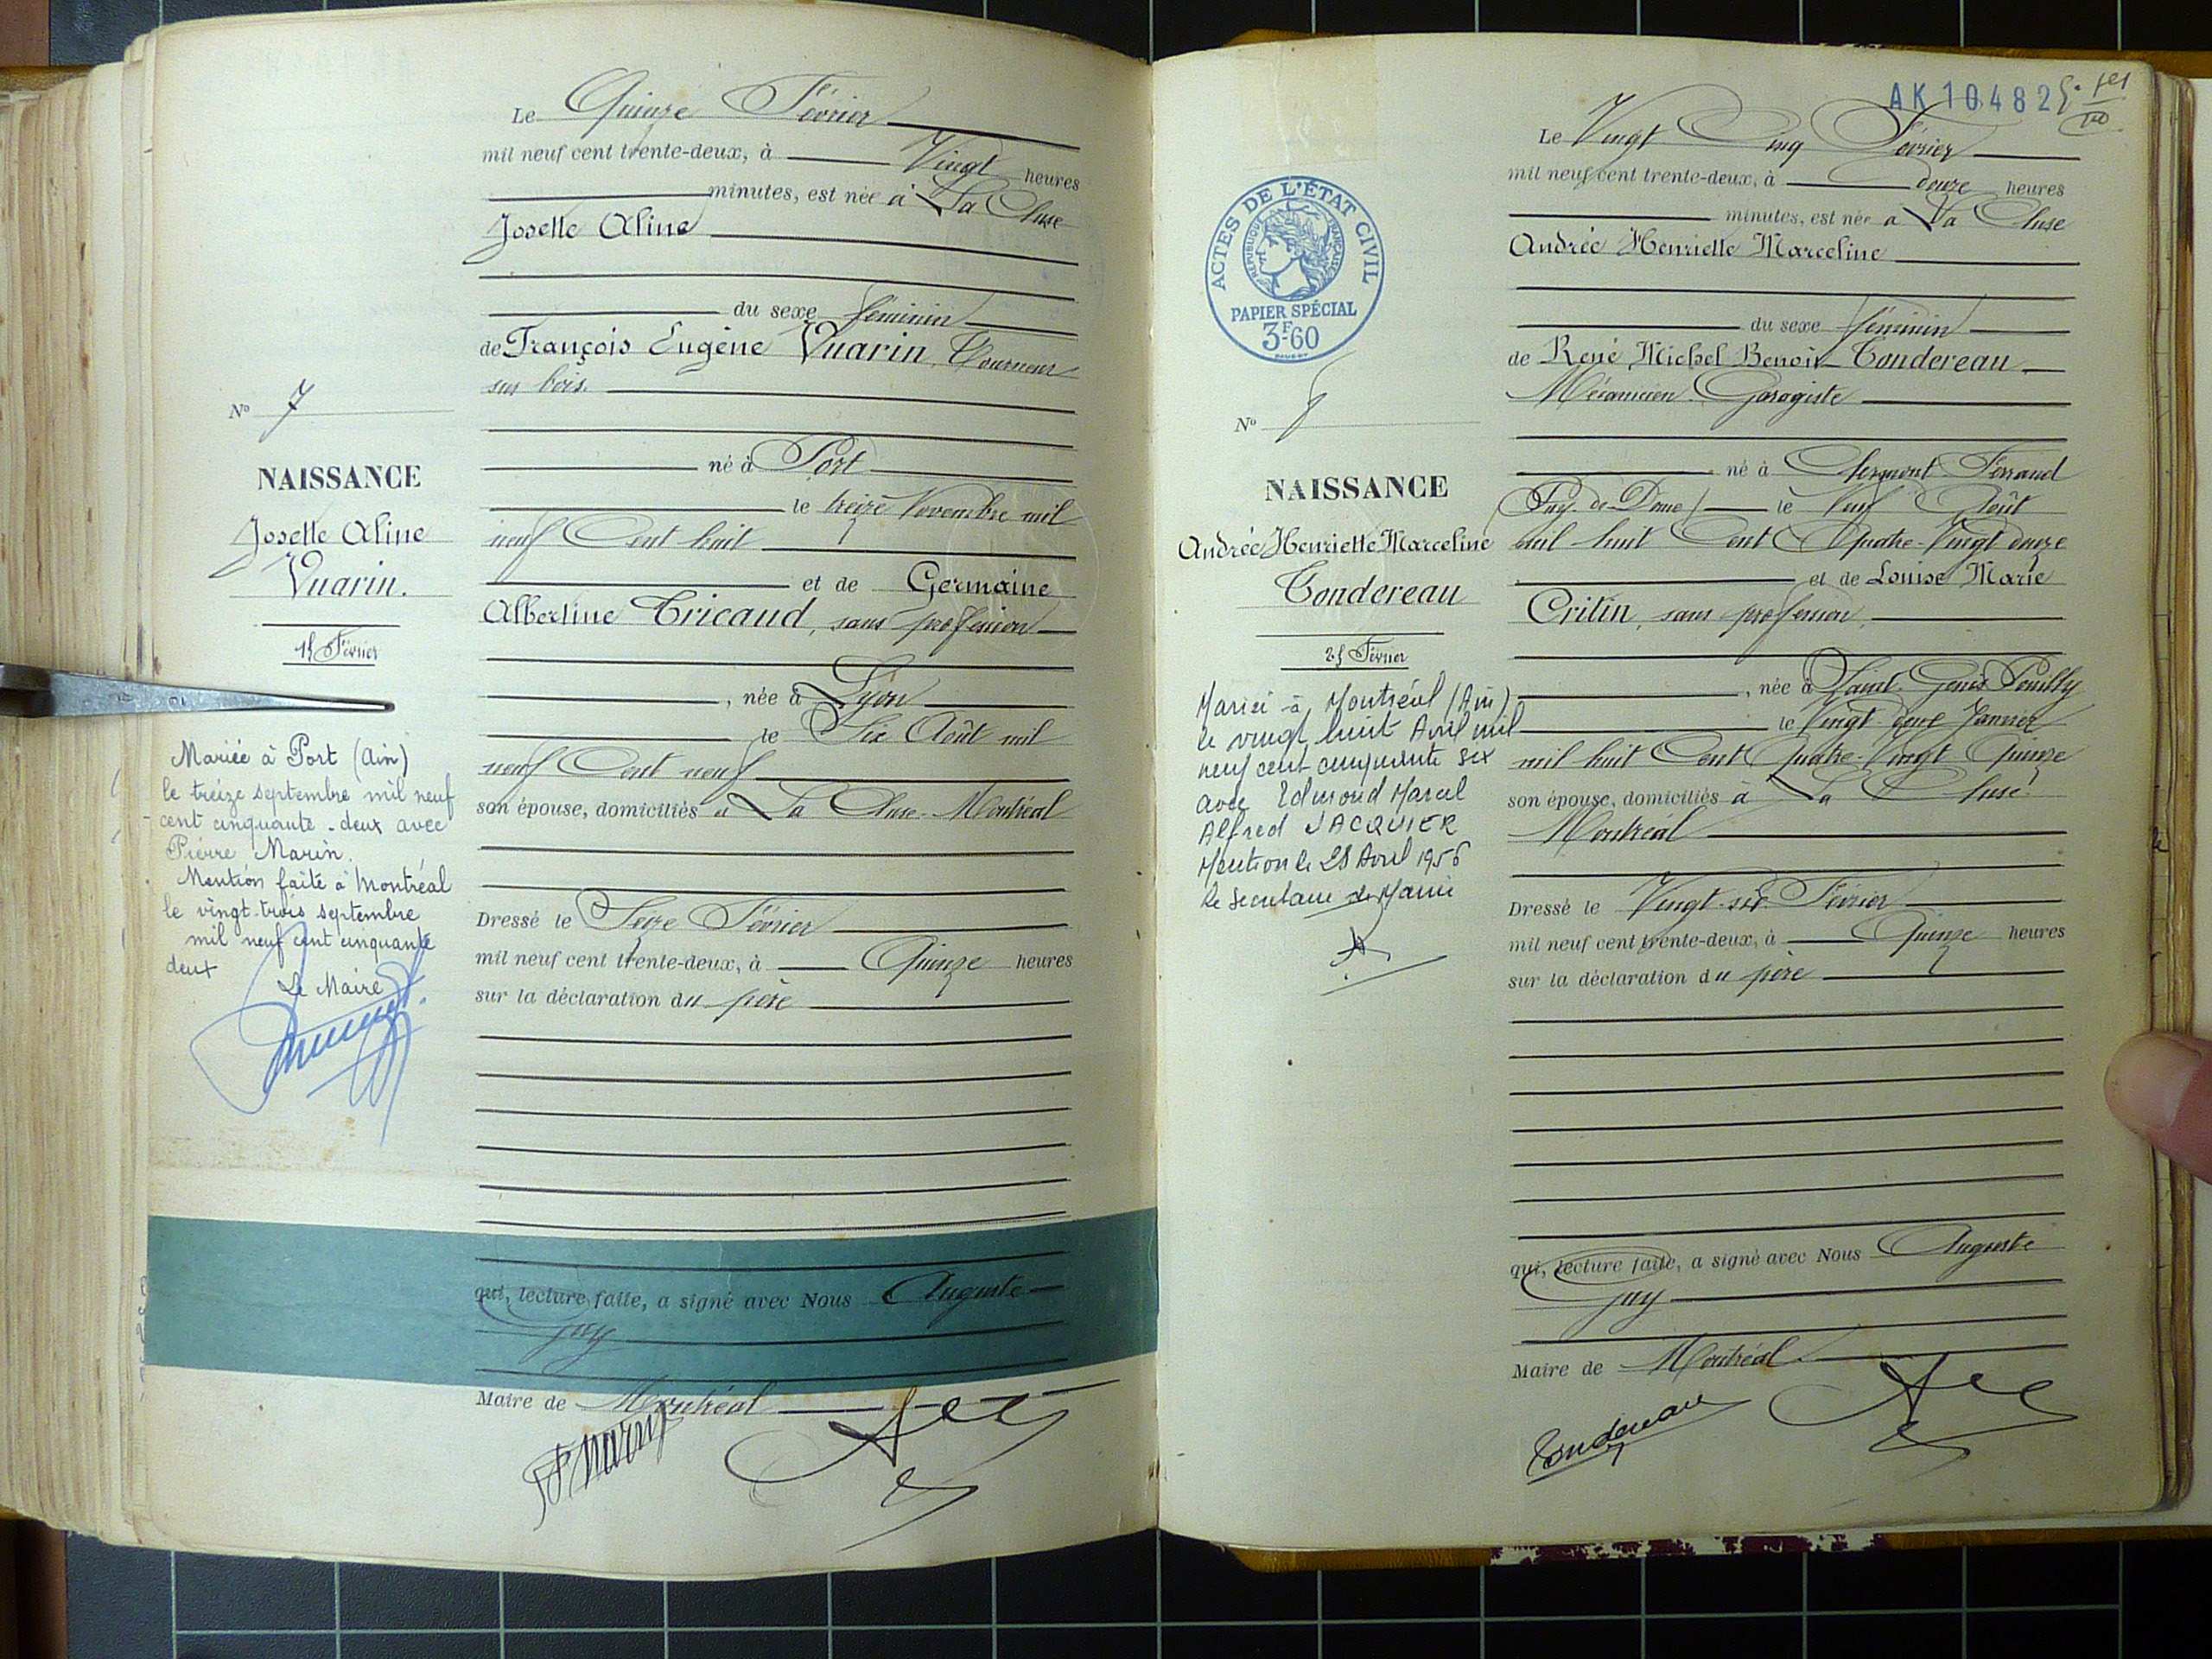 Le Quinze Février
mil neuf cent trente-deux, à Vingt heures
minutes, est née à La Cluse
Josette Aline
du sexe féminin
de François Eugène Vuarin, Tourneur
sur bois.
né à Port
le treize Novembre mil
neuf Cent huit
et de Germaine
Albertine Tricaud, sans profession
, née à Lyon
le Six Août mil
neuf Cent neuf
son épouse, domiciliés à La Cluse-Montréal
Dressé le Seize Février
mil neuf cent trente-deux, à Quinze heures
sur la déclaration du père
qui, lecture faite, a signé avec Nous Auguste
Guy
Maire de Montréal
No 7
NAISSANCE
Josette Aline
Vuarin.
15 Février
Mariée à Port (Ain)
le treize septembre mil neuf
cent cinquante-deux avec
Pierre Marin.
Mention faite à Montréal
le vingt-trois septembre
mil neuf cent cinquante
deux
Le Maire
AK 10482
Le Vingt Cinq Février
mil neuf cent trente-deux, à douze heures
minutes, est née à La Cluse
Andrée Henriette Marceline
du sexe féminin
de René Michel Benoit Tondereau
Mécanicien-Garagiste
né à Clermont-Ferrand
(Puy-de-Dome) le neuf Août
mil huit Cent Quatre-Vingt douze
et de Louise Marie
Critin, sans profession,
, née à Saint-Genis Pouilly
le Vingt-deux Janvier
mil huit Cent Quatre-Vingt Quinze
son épouse, domiciliés à La Cluse
Montréal
Dressé le Vingt-six Février
mil neuf cent trente-deux, à Quinze heures
sur la déclaration du père
qui, lecture faite, a signé avec Nous Auguste
Guy
Maire de Montréal
Tondereau
ACTES DE L'ÉTAT CIVIL
RÉPUBLIQUE FRANÇAISE
PAPIER SPÉCIAL
3F60
No 8
NAISSANCE
Andrée Henriette Marceline
Tondereau
25 Février
Mariée à Montréal (Ain)
le vingt huit Avril mil
neuf cent cinquante six
avec Edmond Marcel
Alfred JACQUIER
Mention le 28 Avril 1956
Le Secrétaire de Mairie